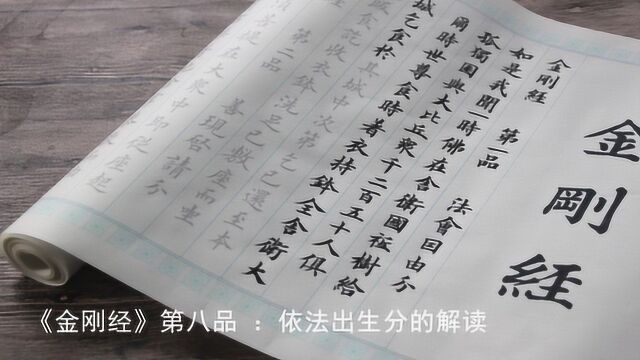 金剛經
金剛經 第一品 法會因由分
如是我聞一時佛在舍衛國祇樹給
孤獨園與大比丘眾千二百五十人俱
爾時世尊食時著衣持鉢入舍衛大
城乞食於其城中次第乞已還至本
飯食訖收衣鉢洗足已敷座而坐
第二品 善現啓請分
菩提在大眾中即從座起
《金刚经》第八品 ：依法出生分的解读